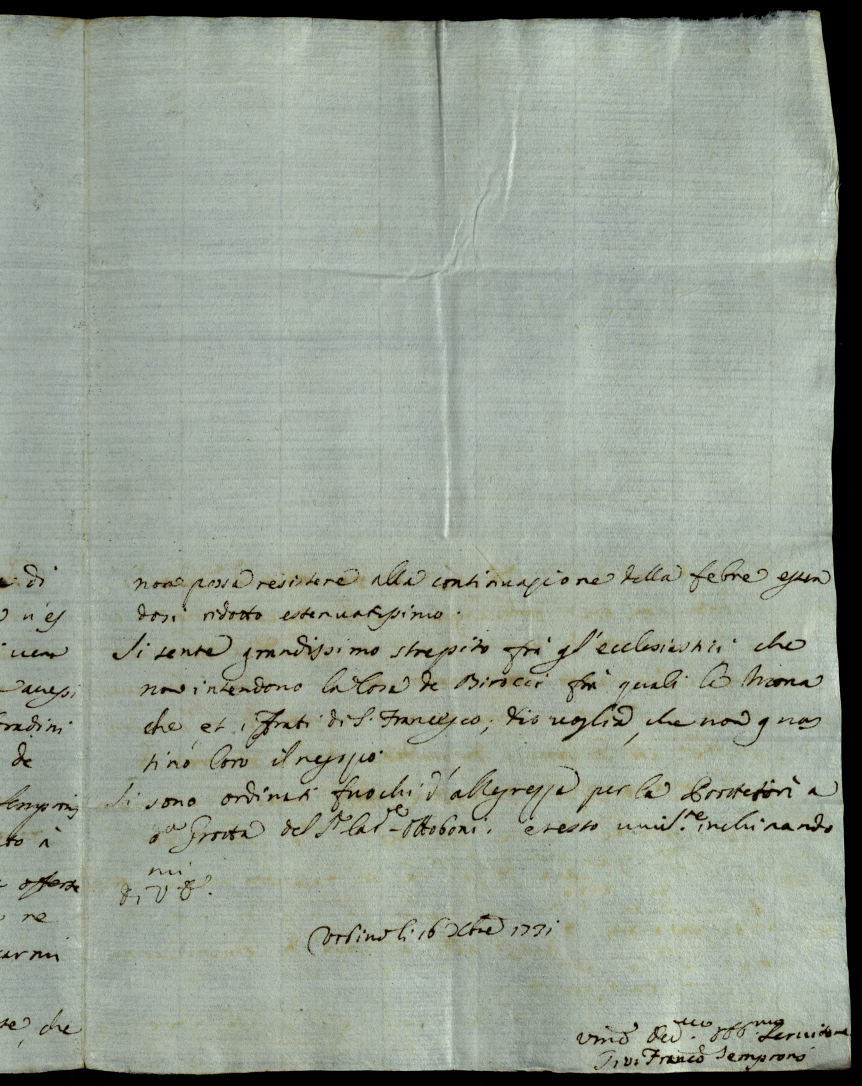 di
n'es
avessi
fradini
de
Sempron
to à
offerte
re
armi
che
non possa resistere alla continuazione della febre essen
dosi ridotto estenuatissimo.
Si sente grandissimo strepito frà gl'ecclesiastici che
non intendono la Cosa de Birocci frà quali le Mona
che et i ffrati di S. Francesco, Dio voglia, che non guas
tino loro il negozio
Si sono ordinati fuochi d'allegrezza per la a
del Sr Ottoboni. e resto umil.te inchinando
mi
di V
Urbino li 16 Xbre
Servitore
Franco Semproni